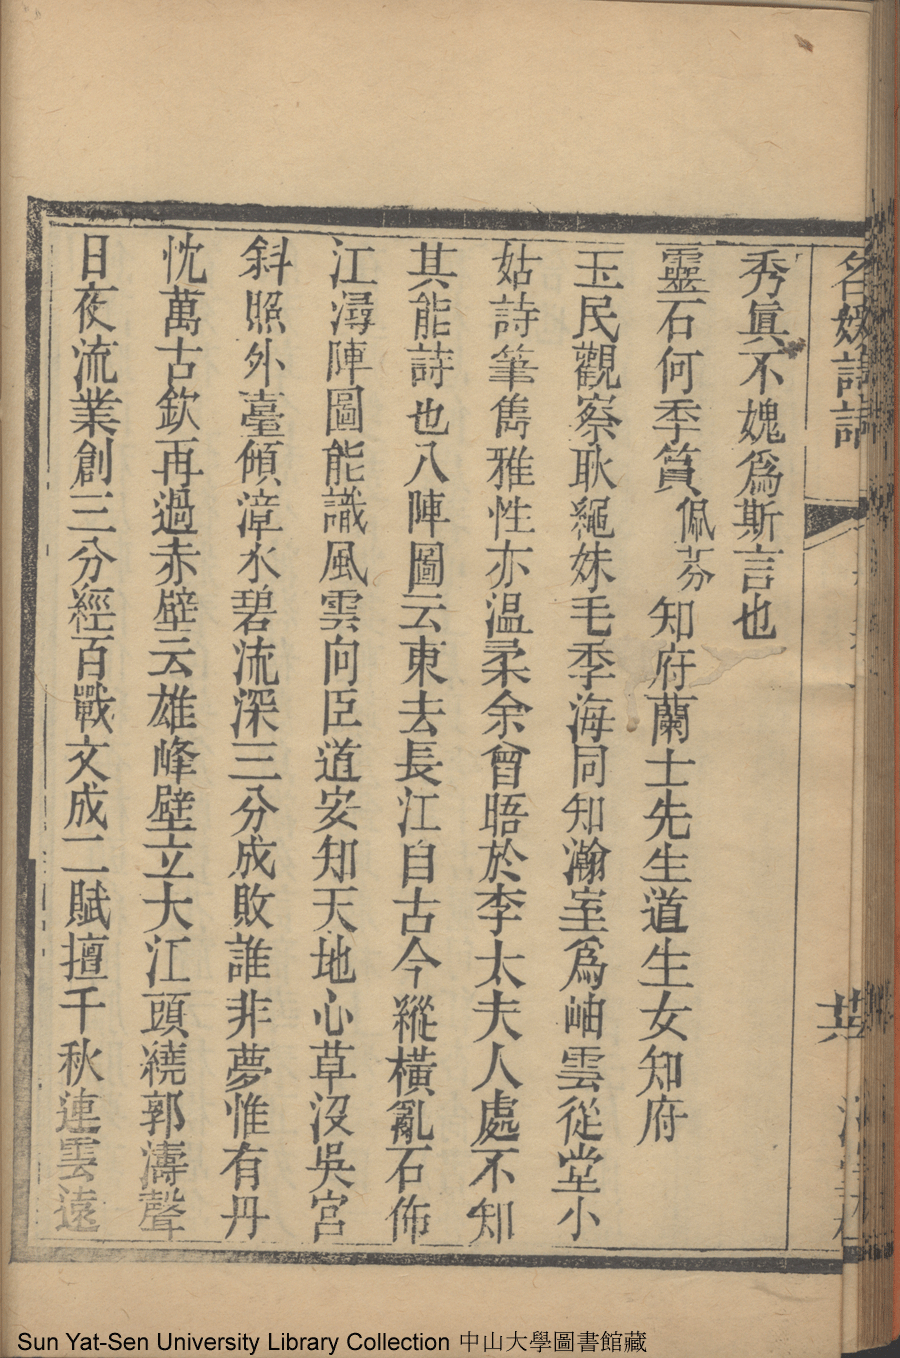 名媛詩話
秀眞不媿爲斯言也
靈石何季蕡佩芬知府蘭士先生道生女知府
玉民觀察耿繩妹毛季海同知瀚室爲岫雲從堂小
姑詩筆雋雅性亦温柔余曾晤於李太夫人處不知
其能詩也八陣圖云東去長江自古今縱橫亂石佈
江潯陣圖能識風雲向臣道安知天地心草沒吳宮
斜照外臺傾漳水碧流深三分成敗誰非夢惟有丹
忱萬古欽再過赤壁云雄峰壁立大江頭繞郭濤聲
日夜流業創三分經百戰文成二賦擅千秋連雲遠
Sun Yat-Sen University Library Collection 中山大學圖書館藏